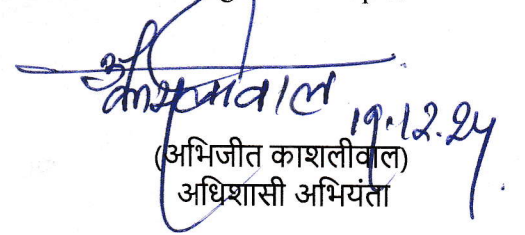 काशलीवाल
19.12.24
(अभिजीत काशलीवाल)
अधिशासी अभियंता